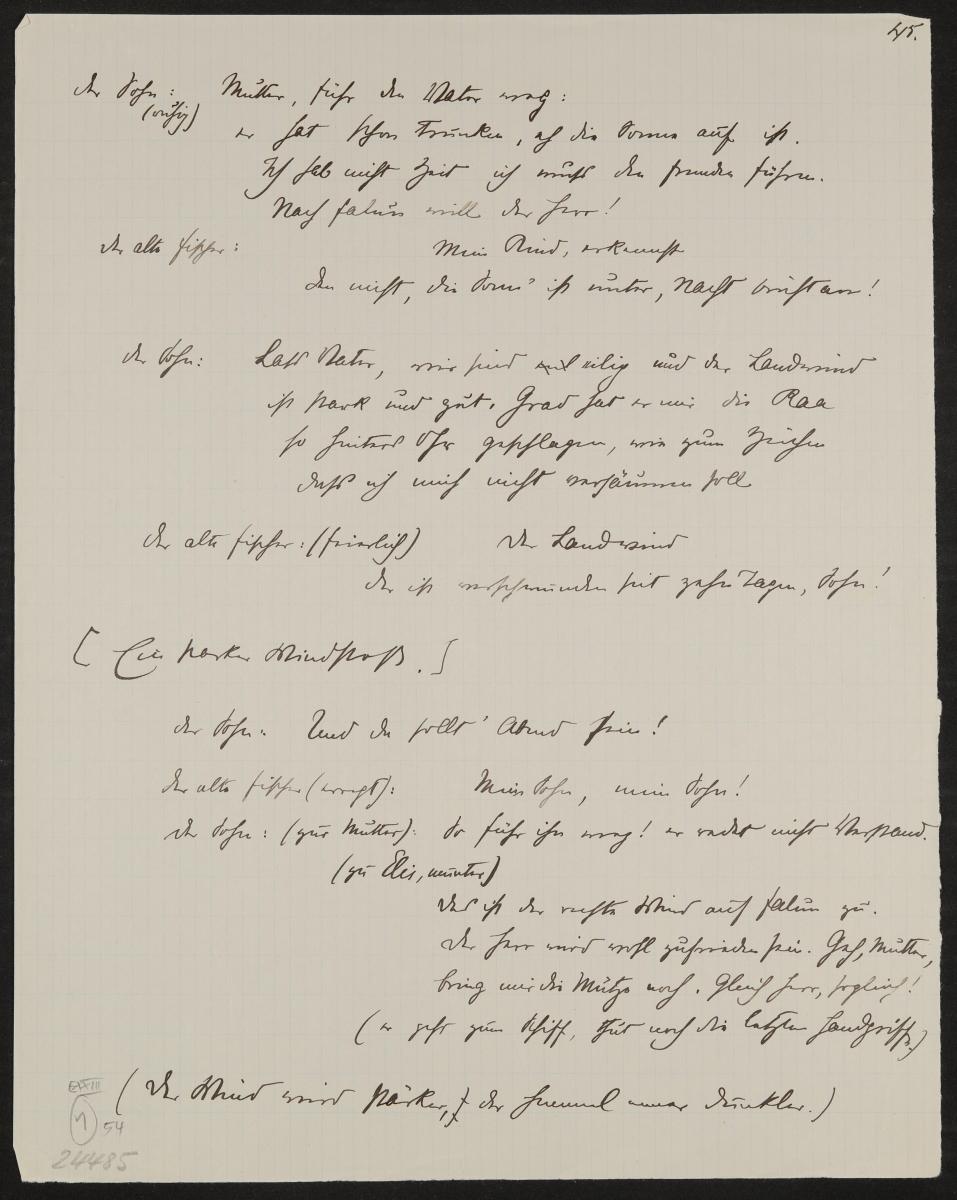 45.
der Sohn: Mutter, führ den Vater weg:
(ruhig)
er hat schon Trunken, eh die Sonne auf ist.
Ich hab nicht Zeit ich muss den fremden führen.
Nach Falun will der Herr!
der alte Fischer: Mein Kind, erkennst
du nicht, die Sonn' ist unter, Nacht bricht an!
der Sohn: Lass Vater, wir sind eilig und der Landwind
ist stark und gut. Grad hat er mir die Raa
so hinters Ohr geschlagen, wie zum Zeichen
dass ich mich nicht versäumen soll
der alte Fischer: (feierlich) Der Landwind
der ist verschwunden seit zehn Tagen, Sohn!
[Ein starker Windstoß.]
der Sohn: Und da sollt' Abend sein!
der alte Fischer (erregt): Mein Sohn, mein Sohn!
der Sohn: (zur Mutter): So führ ihn weg! er redet nicht Verstand.
(zu Elis, munter)
Das ist der rechte Wind auf Falun zu.
Der Herr wird wohl zufrieden sein. Geh, Mutter,
bring mir die Mütze noch. Gleich Herr, sogleich!
(er geht zum Schiff, thut noch die letzten Handgriffe)
(Der Wind wird stärker, der Himmel immer dunkler.)
EIII
1
54
24485